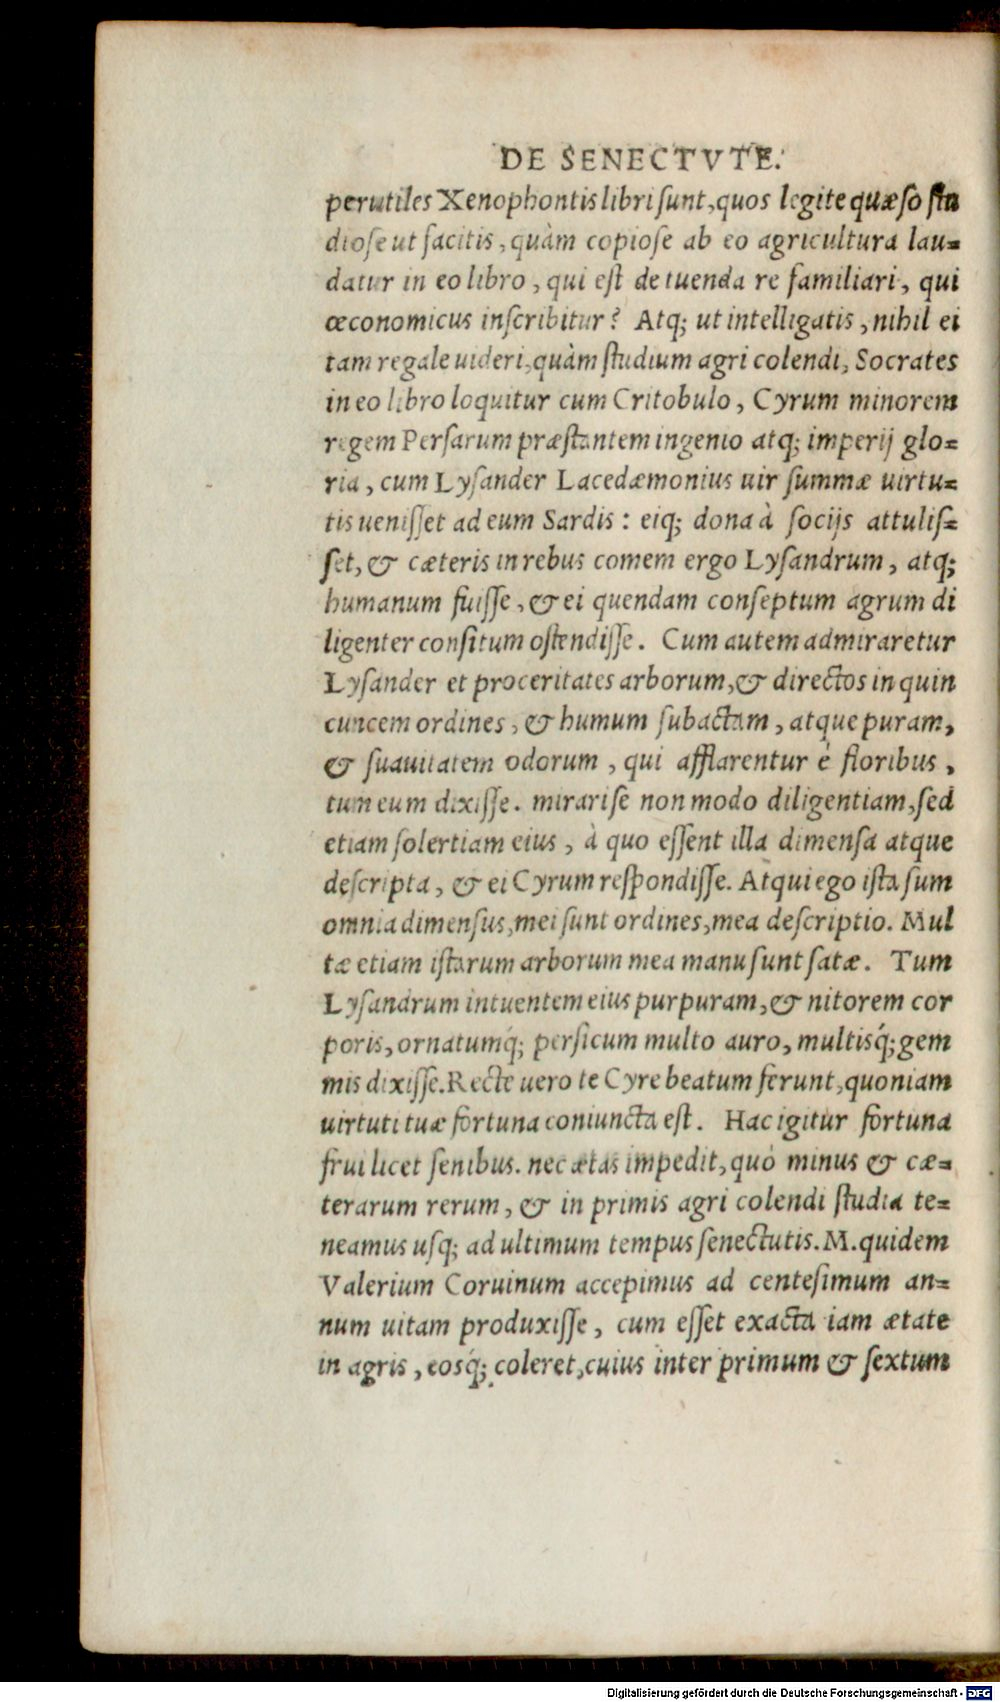 DE SENECTVTE.
perutiles Xenophontis libri sunt, quos legite quæso stu
diose ut facitis, quàm copiose ab eo agricultura lau=
datur in eo libro, qui est de tuenda re familiari, qui
œconomicus inscribitur? Atq; ut intelligatis, nihil ei
tam regale uideri, quàm studium agri colendi, Socrates
in eo libro loquitur cum Critobulo, Cyrum minorem
regem Persarum præstantem ingenio atq; imperij glo=
ria, cum Lysander Lacedæmonius uir summæ uirtu=
tis uenisset ad eum Sardis: eiq; dona à socijs attulis=
set, & cæteris in rebus comem ergo Lysandrum, atq;
humanum fuisse, & ei quendam conseptum agrum di
ligenter consitum ostendisse. Cum autem admiraretur
Lysander et proceritates arborum, & directos in quin
cuncem ordines, & humum subactam, atque puram,
& suauitatem odorum, qui afflarentur è floribus,
tum eum dixisse. mirari se non modo diligentiam, sed
etiam solertiam eius, à quo essent illa dimensa atque
descripta, & ei Cyrum respondisse. Atqui ego ista sum
omnia dimensus, mei sunt ordines, mea descriptio. Mul
tæ etiam istarum arborum mea manu sunt satæ. Tum
Lysandrum intuentem eius purpuram, & nitorem cor
poris, ornatumq́; persicum multo auro, multisq́; gem
mis dixisse. Recte uero te Cyre beatum ferunt, quoniam
uirtuti tuæ fortuna coniuncta est. Hac igitur fortuna
frui licet senibus. nec ætas impedit, quò minus & cæ=
terarum rerum, & in primis agri colendi studia te=
neamus usq; ad ultimum tempus senectutis. M. quidem
Valerium Coruinum accepimus ad centesimum an=
num uitam produxisse, cum esset exacta iam ætate
in agris, eosq́; coleret, cuius inter primum & sextum
Digitalisierung gefördert durch die Deutsche Forschungsgemeinschaft - DFG